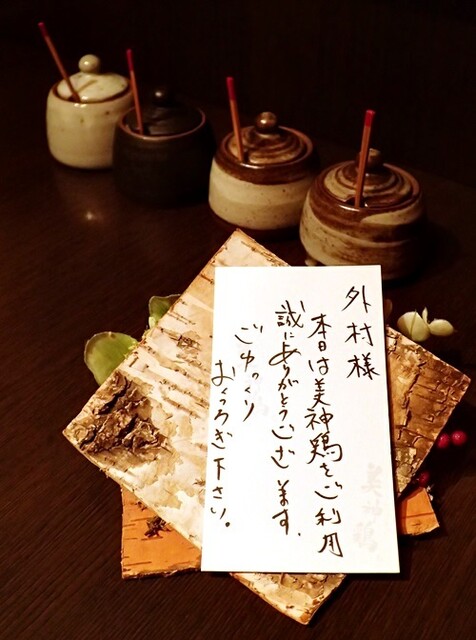 外村様
本日は美神鶏をご利用
誠にありがとうございます。
ごゆっくり
おくつろぎ下さい。